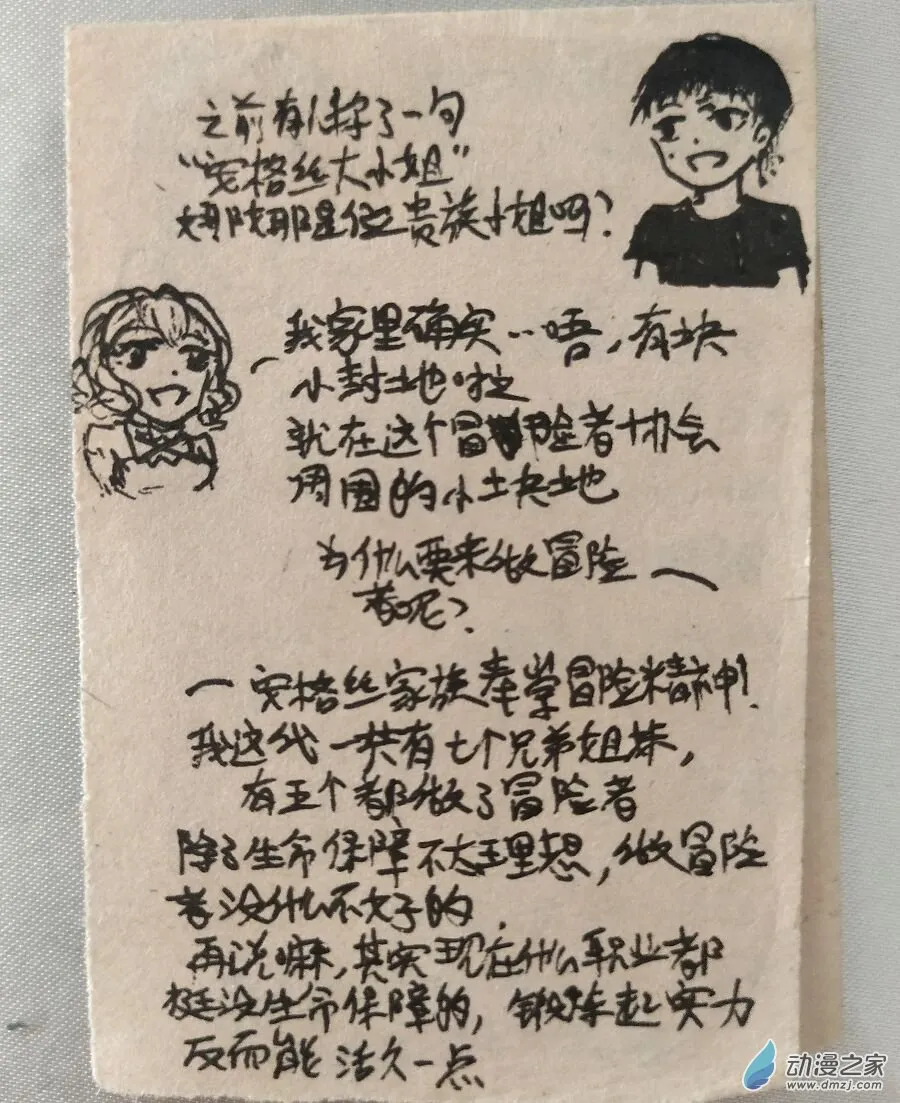 之前有人称了一句
“安格丝大小姐”
娜娜是位贵族小姐吗?
我家里确实…唔,有块
小封土地啦
就在这个冒险者协会
周围的小土块地
为什么要来做冒险
者呢?
安格丝家族奉学冒险精神!
我这代一共有七个兄弟姐妹,
有五个都做了冒险者
除了生命保障不太理想,做冒险
者没什么不好的
再说嘛,其实现在什么职业都
挺没生命保障的,锻炼起实力
反而能活久一点
动漫之家
www.dmzj.com